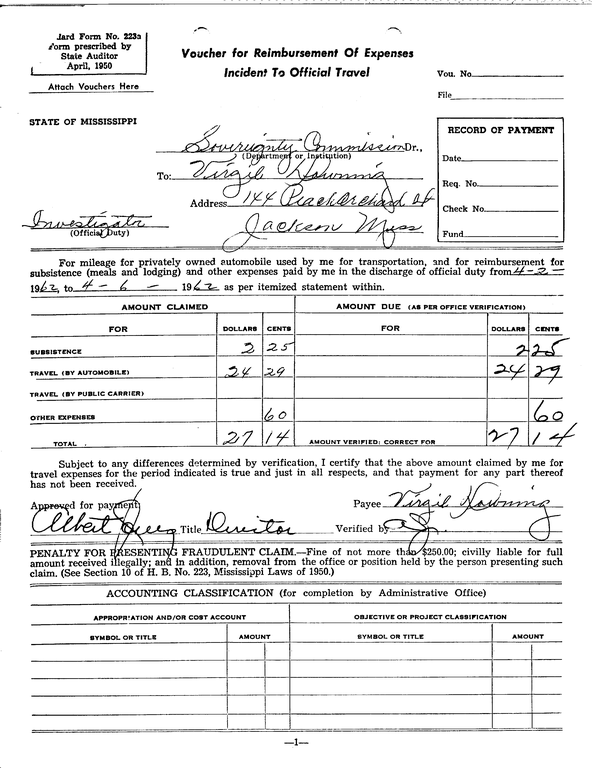 Jard Form No. 223a
Form prescribed by
State Auditor
April, 1950
Attach Vouchers Here
Voucher for Reimbursement Of Expenses
Incident To Official Travel
Vou. No.
File
STATE OF MISSISSIPPI
Sovereignty Commission Dr.,
(Department or Institution)
To: Virgil Downing
Address 144 Peach Orchard St
Jackson Miss
Investigator
(Official Duty)
RECORD OF PAYMENT
Date
Req. No.
Check No.
Fund
For mileage for privately owned automobile used by me for transportation, and for reimbursement for
subsistence (meals and lodging) and other expenses paid by me in the discharge of official duty from 4-2-
1962, to 4-6-1962 as per itemized statement within.
AMOUNT CLAIMED AMOUNT DUE (AS PER OFFICE VERIFICATION)
FOR DOLLARS CENTS FOR DOLLARS CENTS
SUBSISTENCE 2 25 2 25
TRAVEL (BY AUTOMOBILE) 24 29 24 29
TRAVEL (BY PUBLIC CARRIER)
OTHER EXPENSES 60 60
TOTAL 27 14 AMOUNT VERIFIED: CORRECT FOR 27 14
Subject to any differences determined by verification, I certify that the above amount claimed by me for
travel expenses for the period indicated is true and just in all respects, and that payment for any part thereof
has not been received.
Approved for payment: Payee Virgil Downing
Albert Jones Title Director Verified by
PENALTY FOR PRESENTING FRAUDULENT CLAIM.—Fine of not more than $250.00; civilly liable for full
amount received illegally; and in addition, removal from the office or position held by the person presenting such
claim. (See Section 10 of H. B. No. 223, Mississippi Laws of 1950.)
ACCOUNTING CLASSIFICATION (for completion by Administrative Office)
APPROPRIATION AND/OR COST ACCOUNT OBJECTIVE OR PROJECT CLASSIFICATION
SYMBOL OR TITLE AMOUNT SYMBOL OR TITLE AMOUNT
—1—